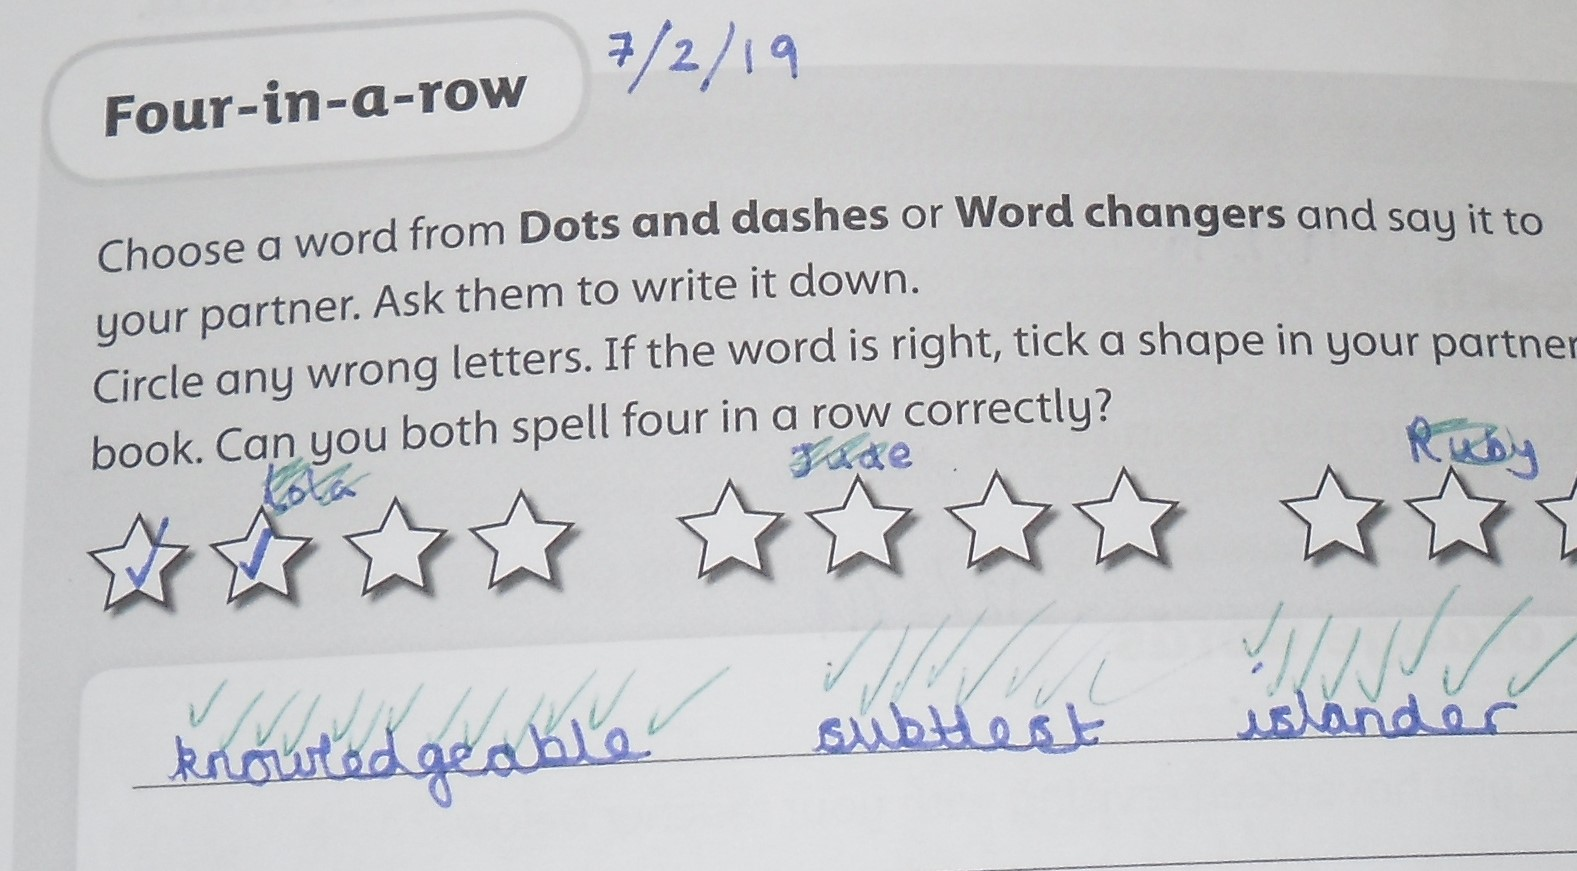 Four-in-a-row 7/2/19
Choose a word from Dots and dashes or Word changers and say it to
your partner. Ask them to write it down.
Circle any wrong letters. If the word is right, tick a shape in your partner
book. Can you both spell four in a row correctly?
Lola Jude Ruby
knowledgeable subtlest islander